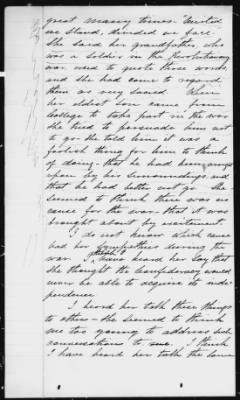 great many times. "United
we Stand, divided we fall."
She said her grandfather, who
was a soldier in the Revolutionary
war used to quote these words,
and she had come to regard
them as very sacred. When
her eldest son came from
College to take part in the war
she tried to persuade him not
to go. She told him it was a
foolish thing for him to think
of doing - that he had been
upon by his surroundings and
that he had better not go. She
seemed to think there was no
cause for the war - that it was
brought about by excitement.
I do not know which cause
had her sympathies during the
war. I have heard her say that
she thought the Confederacy would
never be able to acquire its inde-
pendence.
I heard her talk these things
to others - she seemed to think
me too young to address such
conversations to me. I think
I have heard her talk the same